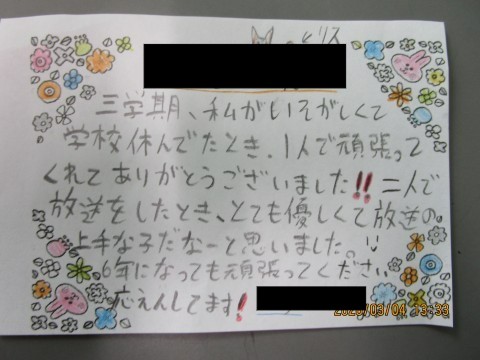 リス
三学期、私がいそがしくて
学校休んでたとき、1人で頑張って
くれてありがとうございました!!二人で
放送をしたとき、とても優しくて放送の
上手な子だなーと思いました。
6年になっても頑張ってください
応えんしてます!
2020/03/04 13:33